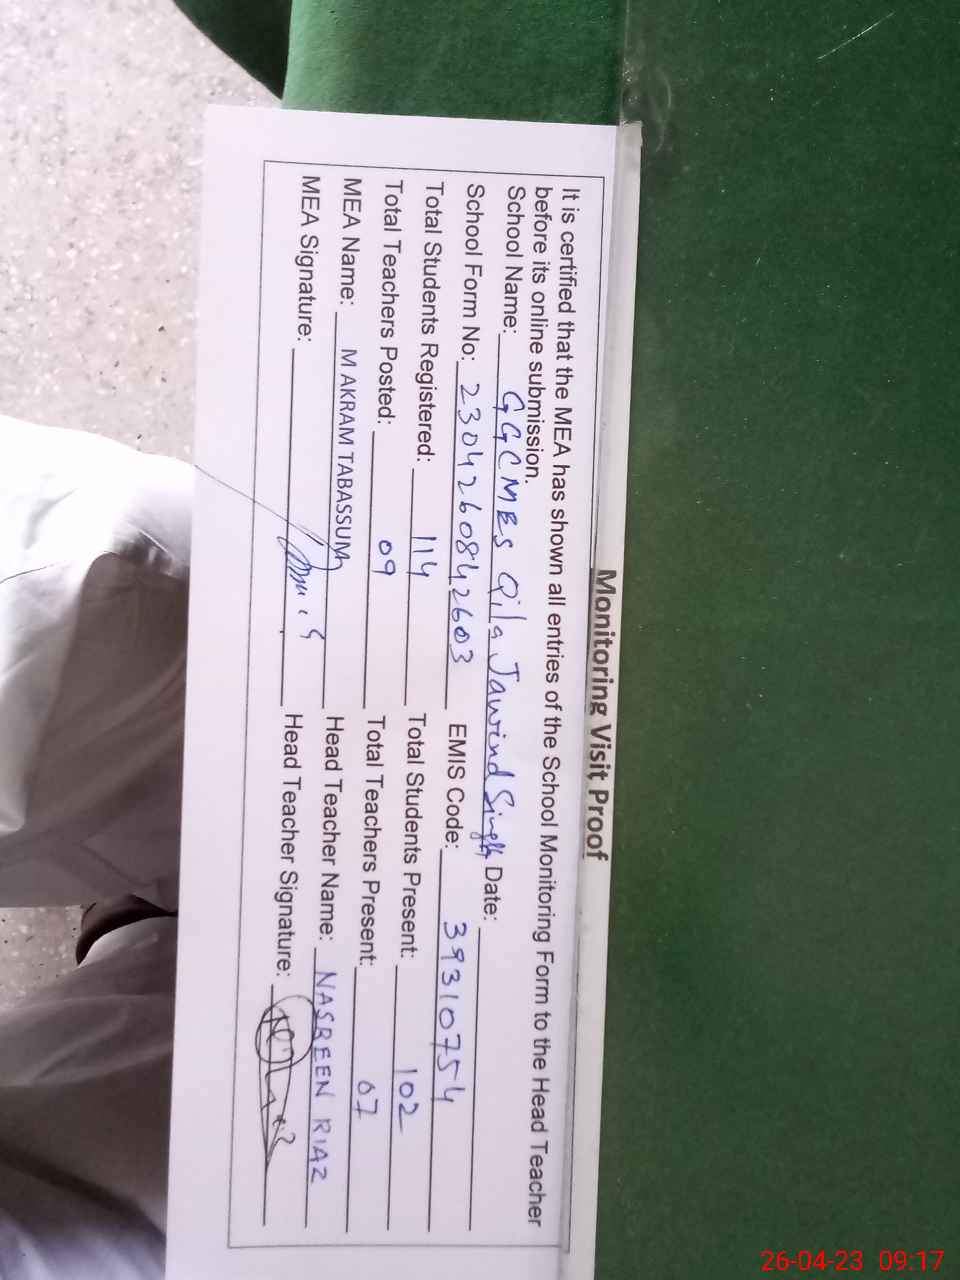 Monitoring Visit Proof
It is certified that the MEA has shown all entries of the School Monitoring Form to the Head Teacher
before its online submission.
School Name: GGCMES Qila Jawind Singh Date:
School Form No: 2304260842603 EMIS Code: 39310754
Total Students Registered: 114 Total Students Present: 102
Total Teachers Posted: 09 Total Teachers Present: 07
MEA Name: M AKRAM TABASSUM Head Teacher Name: NASREEN RIAZ
MEA Signature: Head Teacher Signature:
26-04-23 09:17